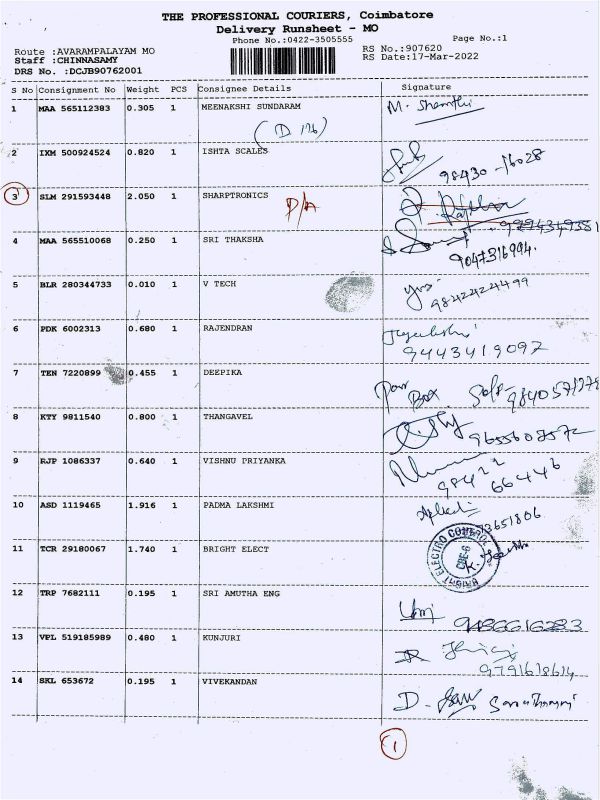 THE PROFESSIONAL COURIERS, Coimbatore
Delivery Runsheet - MO
Phone No.:0422-3505555
Page No.:1
Route :AVARAMPALAYAM MO
RS No.:907620
Staff :CHINNASAMY
RS Date:17-Mar-2022
DRS No. :DCJB90762001
S No Consignment No Weight PCS Consignee Details Signature
1 MAA 565112383 0.305 1 MEENAKSHI SUNDARAM M.
2 IXM 500924524 0.820 1 ISHTA SCALES 98430-16028
3 SLM 291593448 2.050 1 SHARPTRONICS D/A
4 MAA 565510068 0.250 1 SRI THAKSHA 9047316994.
5 BLR 280344733 0.010 1 V TECH 9842424499
6 PDK 6002313 0.680 1 RAJENDRAN 9443419092
7 TEN 7220899 0.455 1 DEEPIKA
8 KTY 9811540 0.800 1 THANGAVEL
9 RJP 1086337 0.640 1 VISHNU PRIYANKA 98422 66446
10 ASD 1119465 1.916 1 PADMA LAKSHMI
11 TCR 29180067 1.740 1 BRIGHT ELECT ELECTRO CONTROL CBE-6
12 TRP 7682111 0.195 1 SRI AMUTHA ENG 9486616283
13 VPL 519185989 0.480 1 KUNJURI 9791618614
14 SKL 653672 0.195 1 VIVEKANDAN D.
1